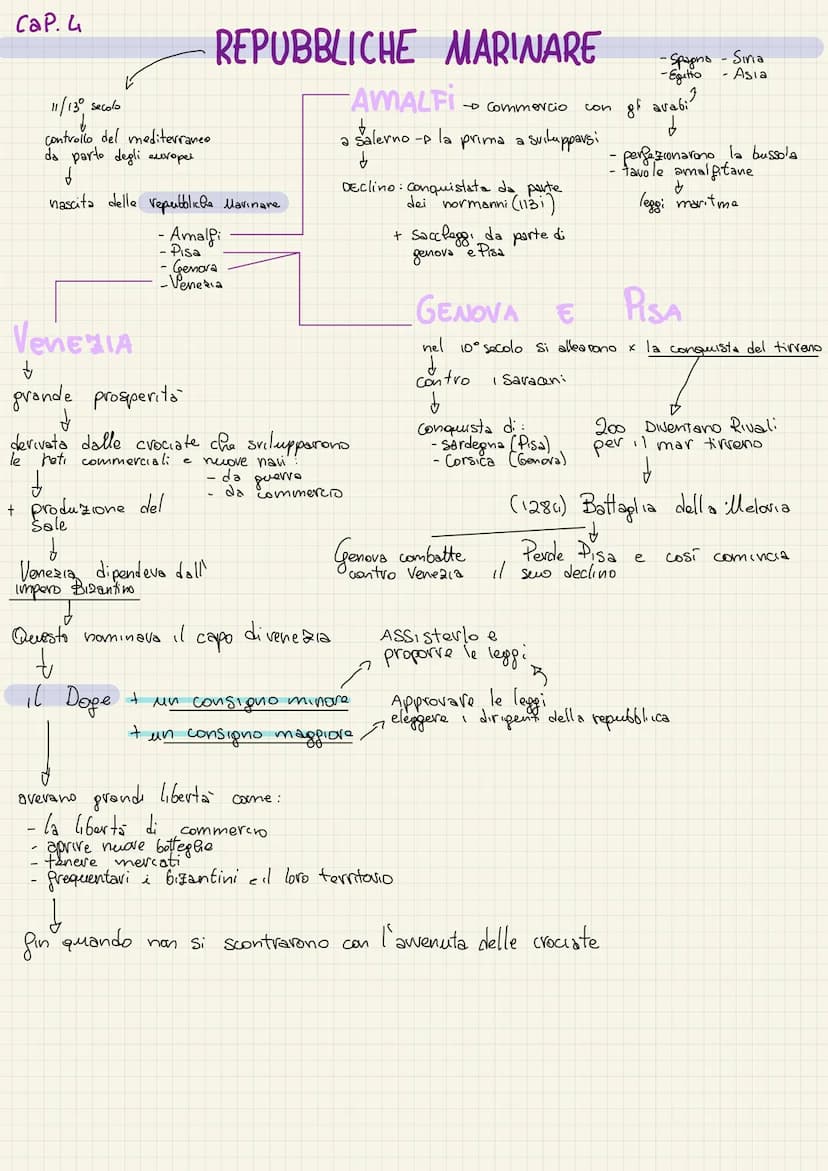 CAP. 4
REPUBBLICHE MARINARE
11/13° secolo
controllo del mediterraneo
da parte degli europei
nascita delle repubbliche Marinare
- Amalfi
- Pisa
- Genova
- Venezia
AMALFI → commercio con gli arabi
- Spagna - Siria
- Egitto - Asia
a Salerno → la prima a svilupparsi
- perfezionarono la bussola
- tavole amalfitane
leggi maritme
Declino: conquistata da parte
dei normanni (1131)
+ saccheggi da parte di
genova e Pisa
GENOVA E PISA
nel 10° secolo si allearono x la conquista del tirreno
contro i Saraceni
conquista di:
- Sardegna (Pisa)
- Corsica (Genova)
200 Diventano Rivali
per il mar tirreno
(1284) Battaglia della Meloria
Genova combatte
contro Venezia
Perde Pisa e così comincia
il suo declino
VENEZIA
grande prosperità
derivata dalle crociate che svilupparono
le reti commerciali e nuove navi:
- da guerra
- da commercio
+ produzione del
Sale
Venezia dipendeva dall'
impero Bizantino
Questo nominava il capo di venezia
il Doge + un consigno minore
+ un consigno maggiore
ASSisterlo e
proporre le leggi
Approvare le leggi
eleggere i dirigenti della repubblica
avevano grandi libertà come:
- la libertà di commercio
- aprire nuove botteghe
- tenere mercati
- frequentavi i bizantini e il loro territorio
fin quando non si scontrarono con l'avvenuta delle crociate